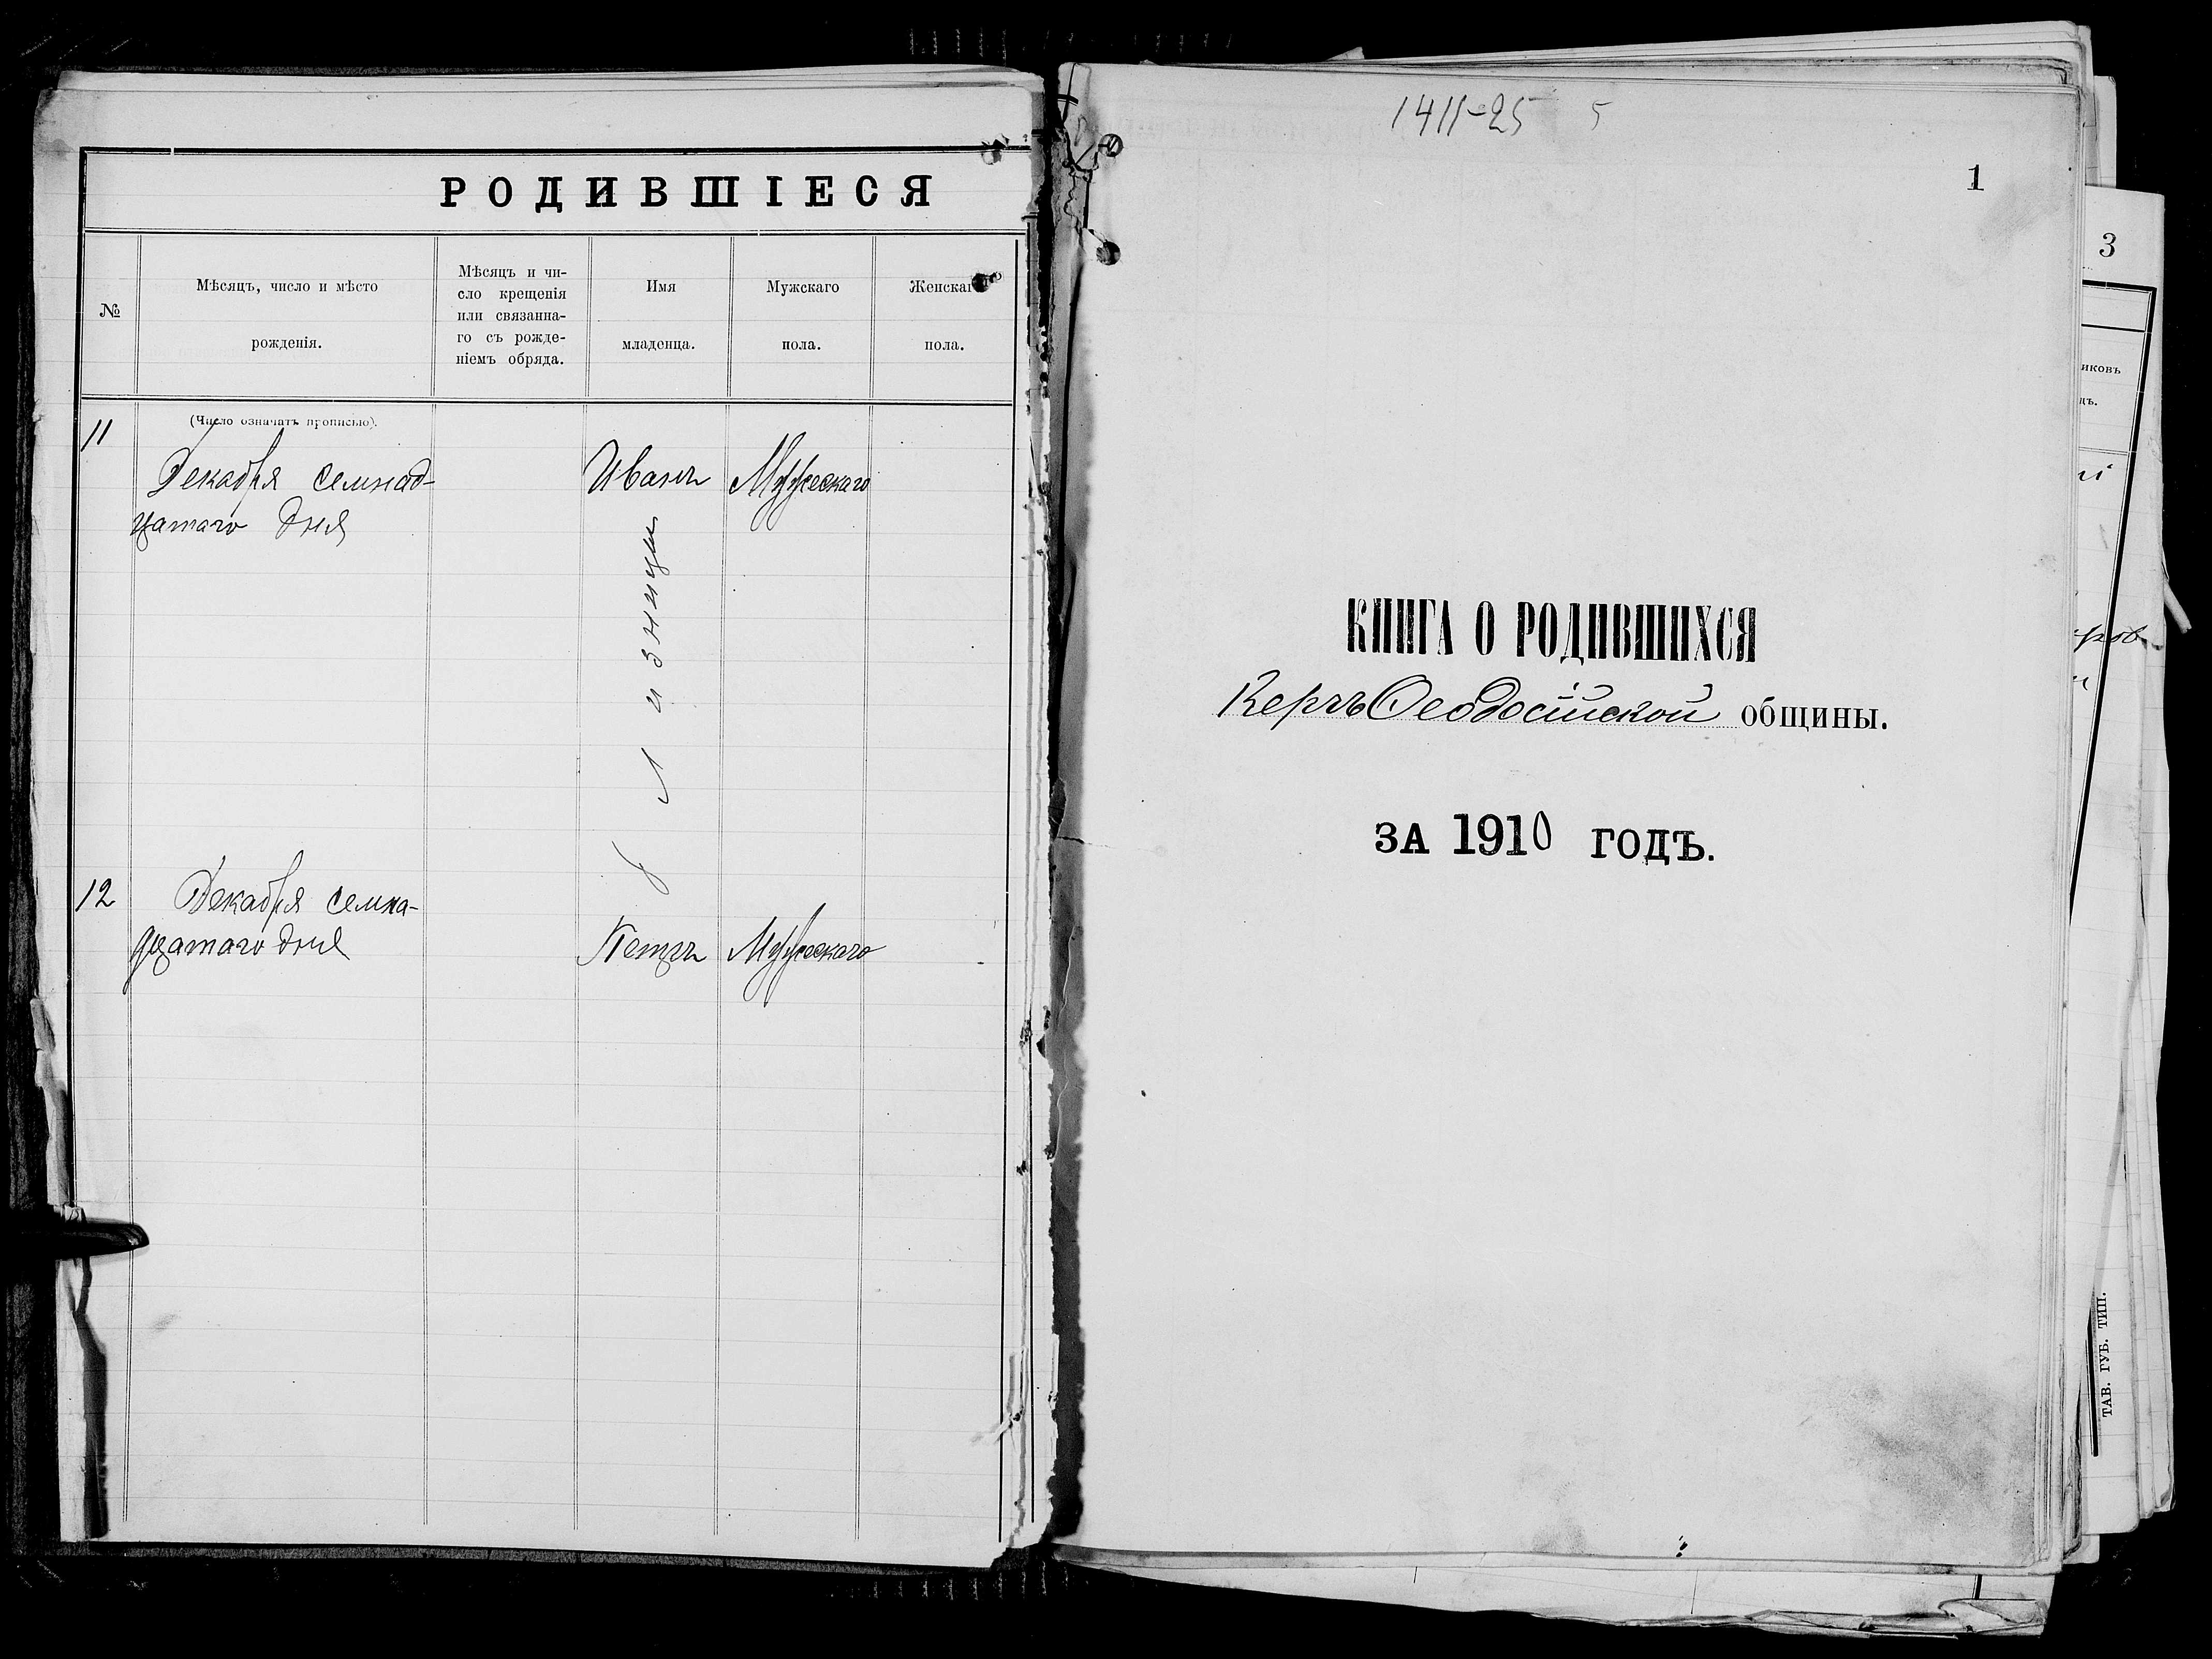 РОДИВШІЕСЯ
№
Мѣсяцъ, число и мѣсто
рожденія.
Мѣсяцъ и чи-
сло крещенія
или связанна-
го съ рожде-
ніемъ обряда.
Имя
младенца.
Мужскаго
пола.
Женскаг
пола.
(Число означать прописью).
11
Декабря семнад-
цатаго дня
Иванъ
Мужескаго
близнецы
12
Декабря семна-
дцатаго дня
Петръ
Мужескаго
1411-25 5
1
КНИГА О РОДИВШИХСЯ
КерчьѲеодосійской общины.
ЗА 1910 ГОДЪ.
3
иковъ
ТАВ. ГУБ. ТИП.